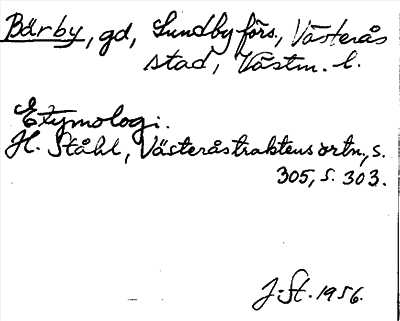 Bärby, gd, Lundby förs., Västerås
stad, Västm. l.
Etymologi.
H. Ståhl, Västeråstraktens ortn., s.
305, s. 303.
J. St. 1956.